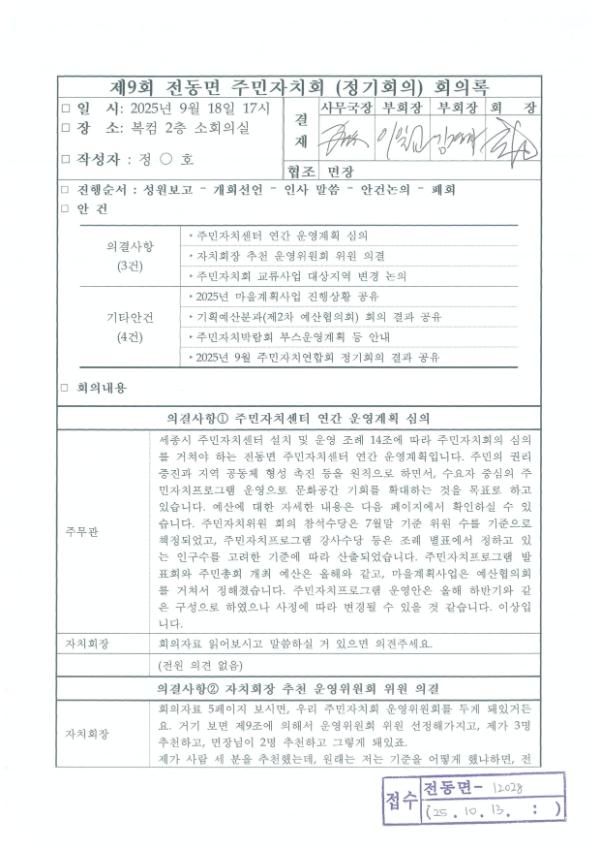 제9회 전동면 주민자치회 (정기회의) 회의록
□ 일 시: 2025년 9월 18일 17시
□ 장 소: 복컴 2층 소회의실
□ 작성자 : 정 ○ 호
결재
사무국장 부회장 부회장 회 장
협조 면장
□ 진행순서 : 성원보고 - 개회선언 - 인사 말씀 - 안건논의 - 폐회
□ 안 건
의결사항
(3건)
• 주민자치센터 연간 운영계획 심의
• 자치회장 추천 운영위원회 위원 의결
• 주민자치회 교류사업 대상지역 변경 논의
기타안건
(4건)
• 2025년 마을계획사업 진행상황 공유
• 기획예산분과(제2차 예산협의회) 회의 결과 공유
• 주민자치박람회 부스운영계획 등 안내
• 2025년 9월 주민자치연합회 정기회의 결과 공유
□ 회의내용
의결사항① 주민자치센터 연간 운영계획 심의
주무관
세종시 주민자치센터 설치 및 운영 조례 14조에 따라 주민자치회의 심의
를 거쳐야 하는 전동면 주민자치센터 연간 운영계획입니다. 주민의 권리
증진과 지역 공동체 형성 촉진 등을 원칙으로 하면서, 수요자 중심의 주
민자치프로그램 운영으로 문화공간 기회를 확대하는 것을 목표로 하고
있습니다. 예산에 대한 자세한 내용은 다음 페이지에서 확인하실 수 있
습니다. 주민자치위원 회의 참석수당은 7월말 기준 위원 수를 기준으로
책정되었고, 주민자치프로그램 강사수당 등은 조례 별표에서 정하고 있
는 인구수를 고려한 기준에 따라 산출되었습니다. 주민자치프로그램 발
표회와 주민총회 개최 예산은 올해와 같고, 마을계획사업은 예산협의회
를 거쳐서 정해졌습니다. 주민자치프로그램 운영안은 올해 하반기와 같
은 구성으로 하였으나 사정에 따라 변경될 수 있을 것 같습니다. 이상입
니다.
자치회장
회의자료 읽어보시고 말씀하실 거 있으면 의견주세요.
(전원 의견 없음)
의결사항② 자치회장 추천 운영위원회 위원 의결
자치회장
회의자료 5페이지 보시면, 우리 주민자치회 운영위원회를 두게 돼있거든
요. 거기 보면 제9조에 의해서 운영위원회 위원 선정해가지고, 제가 3명
추천하고, 면장님이 2명 추천하고 그렇게 돼있죠.
제가 사람 세 분을 추천했는데, 원래는 저는 기준을 어떻게 했냐하면, 전
접수 전동면- 12028
(25. 10. 13. : )